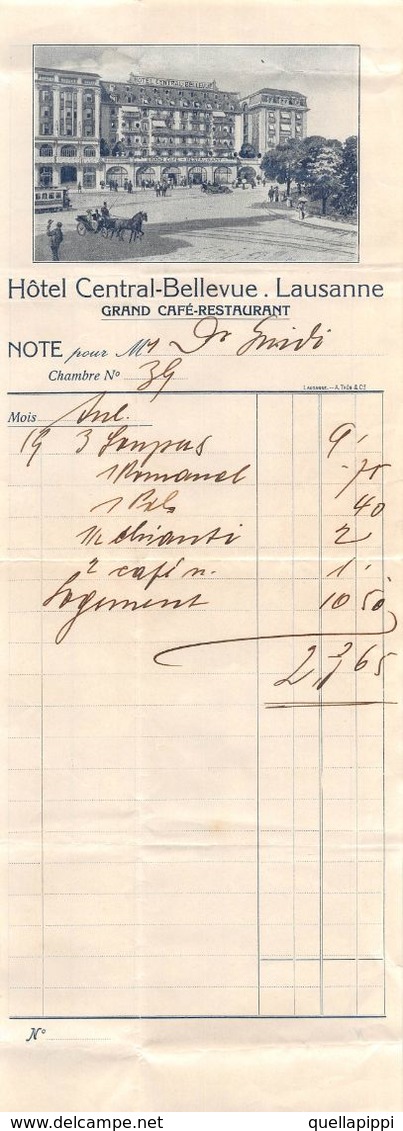 HOTEL CENTRAL-BELLEVUE
GRAND CAFÉ-RESTAURANT
Hôtel Central-Bellevue . Lausanne
GRAND CAFÉ-RESTAURANT
NOTE pour M Dr Guidi
Chambre Nº 39
Lausanne. — A. Trüb & Cie
Mois
19 3 Soupers 9.-
1 Romanel -.70
1 40
1/2 chianti 2
2 café n. 1.-
Logement 10 50
65
Nº
quellapippi